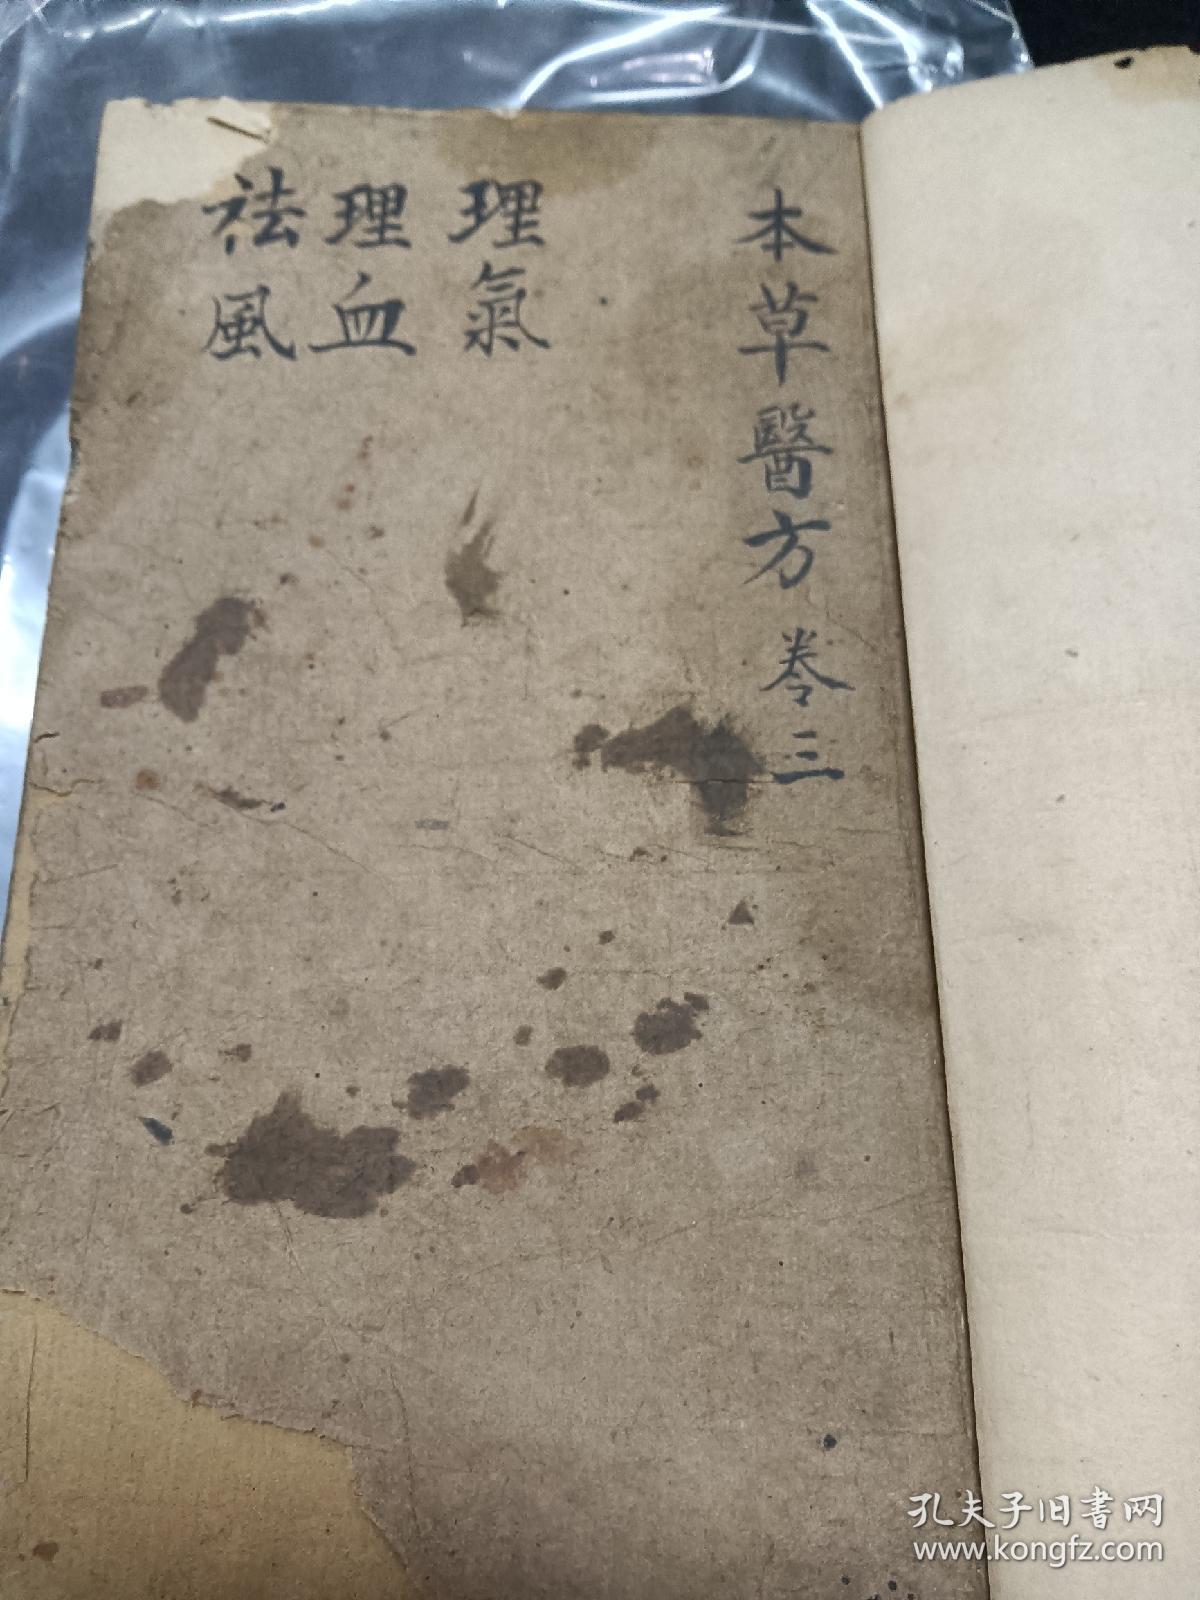 本草醫方 卷三
理氣
理血
祛風
孔夫子旧書网
www.kongfz.com